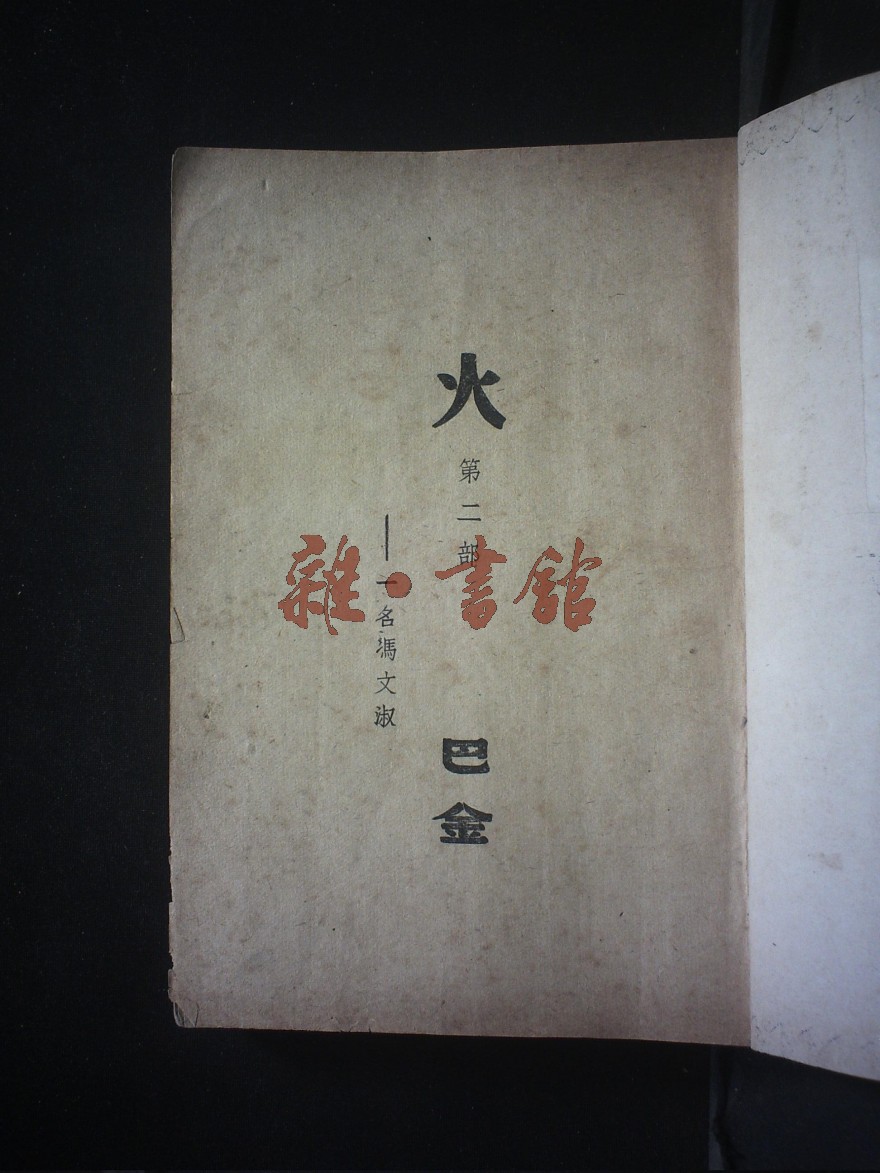 火
第二部
——一名馮文淑
巴金
雜·書館